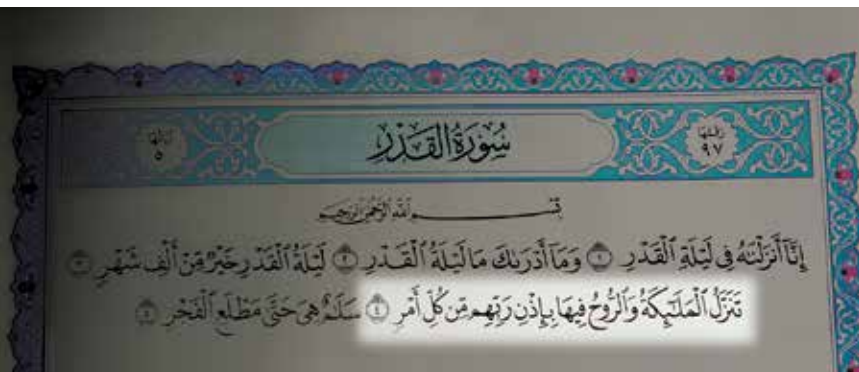 رقمها ٩٧ سُورَةُ الْقَدْرِ آياتها ٥
بِسْمِ اللَّهِ الرَّحْمَٰنِ الرَّحِيمِ
إِنَّا أَنزَلْنَٰهُ فِى لَيْلَةِ الْقَدْرِ ١ وَمَا أَدْرَىٰكَ مَا لَيْلَةُ الْقَدْرِ ٢ لَيْلَةُ الْقَدْرِ خَيْرٌ مِّنْ أَلْفِ شَهْرٍ ٣
تَنَزَّلُ الْمَلَٰٓئِكَةُ وَالرُّوحُ فِيهَا بِإِذْنِ رَبِّهِم مِّن كُلِّ أَمْرٍ ٤ سَلَٰمٌ هِىَ حَتَّىٰ مَطْلَعِ الْفَجْرِ